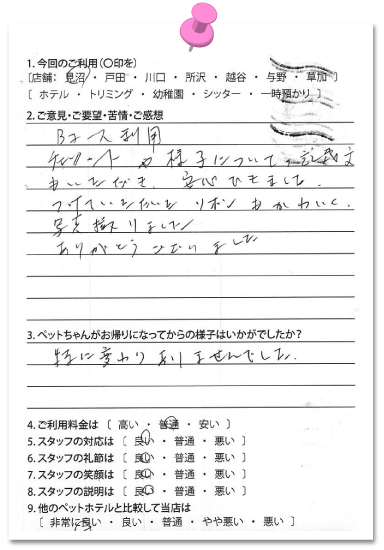 1. 今回のご利用(〇印を)
〔店舗： 見沼 ・ 戸田 ・ 川口 ・ 所沢 ・ 越谷 ・ 与野 ・ 草加 〕
〔 ホテル ・ トリミング ・ 幼稚園 ・ シッター ・ 一時預かり 〕
2. ご意見・ご要望・苦情・ご感想
Bコース利用
の様子について、
いただき、安心できました。
つけていただいたリボンもかわいく、
写真撮りました
ありがとうございました
3. ペットちゃんがお帰りになってからの様子はいかがでしたか?
特に変わりありませんでした。
4. ご利用料金は 〔 高い ・ 普通 ・ 安い 〕
5. スタッフの対応は 〔 良い ・ 普通 ・ 悪い 〕
6. スタッフの礼節は 〔 良い ・ 普通 ・ 悪い 〕
7. スタッフの笑顔は 〔 良い ・ 普通 ・ 悪い 〕
8. スタッフの説明は 〔 良い ・ 普通 ・ 悪い 〕
9. 他のペットホテルと比較して当店は
〔 非常に良い ・ 良い ・ 普通 ・ やや悪い ・ 悪い 〕